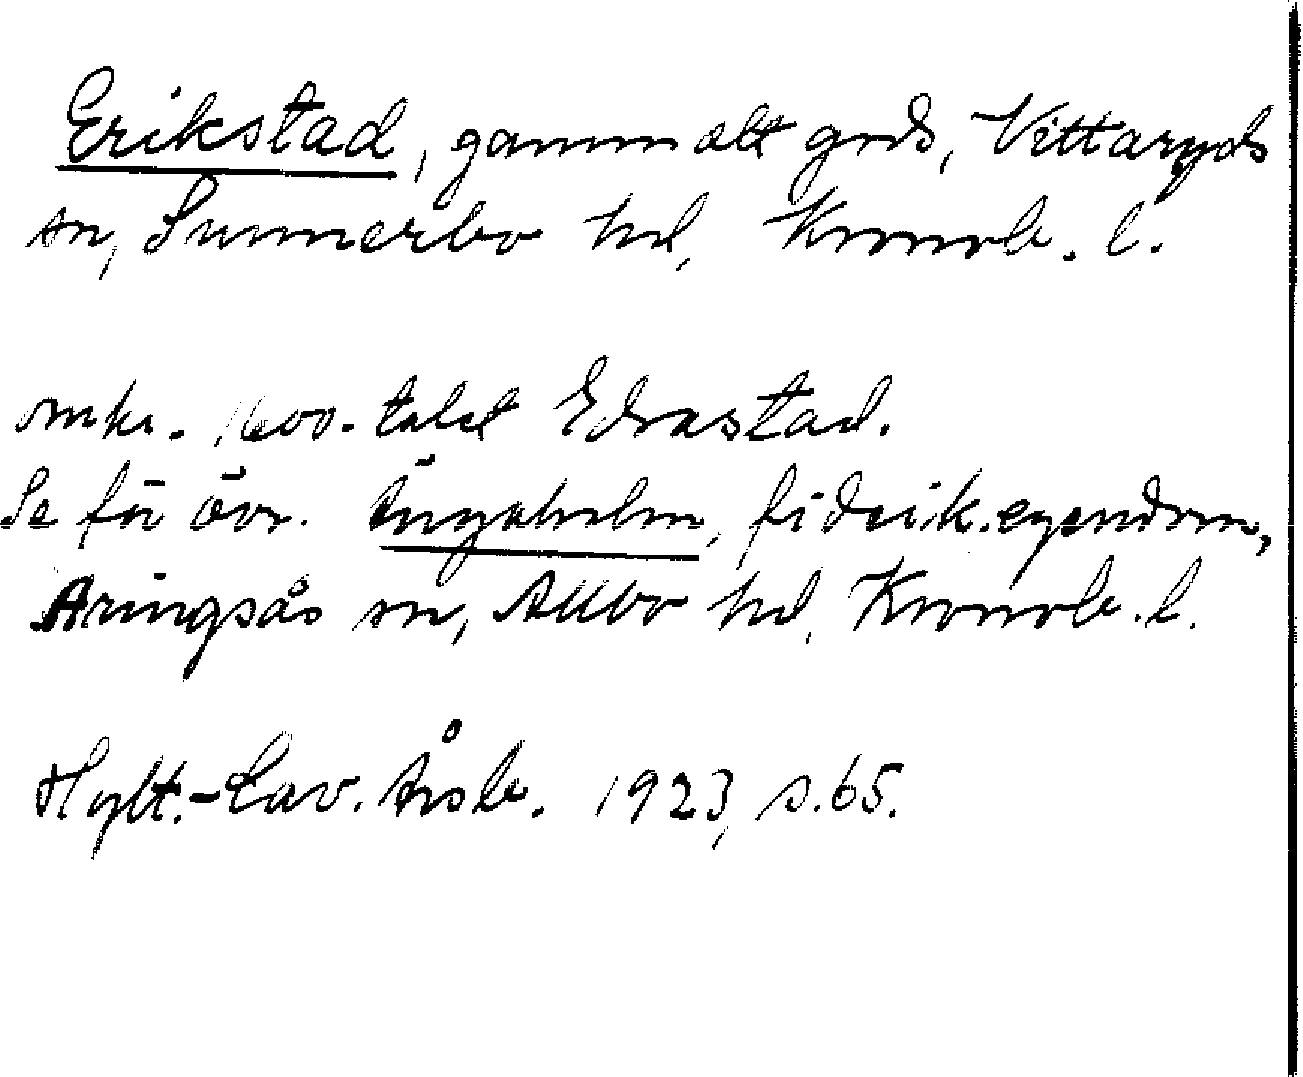 Erikstad, gammalt gods, Vittaryds
sn, Sunnerbo hd, Kronob. l.
omkr. 1600-talet Edrastad.
Se för övr. Ängaholm, fideik.egendom,
Aringsås sn, Allbo hd, Kronob. l.
Hylt.-Cav. Årsb. 1923, s. 65.